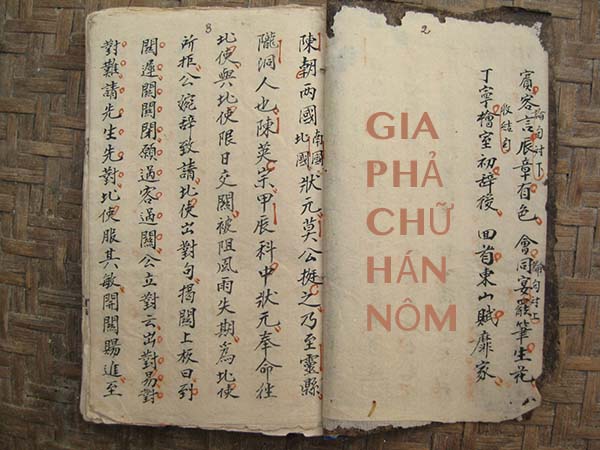 2
賓客言辰章有色 會同宴罷筆生花
收結句
丁寧檜室初辞後 回首東山賦靡家
GIA
PHẢ
CHỮ
HÁN
NÔM
3
陳朝兩國南國北國狀元莫公挺之乃至靈縣
隴洞人也陳英宗甲辰科中狀元奉命徃
北使與北使限日交關被阻風雨失期為北使
所拒公婉辞致請北使出對句揭關上板曰到
關遲關關閉願過客過關公立對云出對易對
對難請先生先對北使服其敏開關賜進至